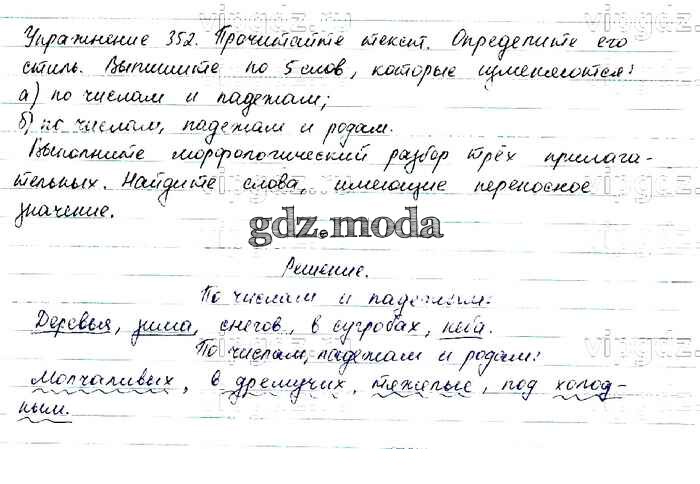 Упражнение 352. Прочитайте текст. Определите его
стиль. Выпишите по 5 слов, которые изменяются:
а) по числам и падежам;
б) по числам, падежам и родам.
Выполните морфологический разбор трёх прилага-
тельных. Найдите слова, имеющие переносное
значение.
gdz.moda
Решение.
По числам и падежам:
Деревья, зима, снегов, в сугробах,
По числам, падежам и родам:
Молчаливых, в дремучих, тяжелые, под холод-
ным.